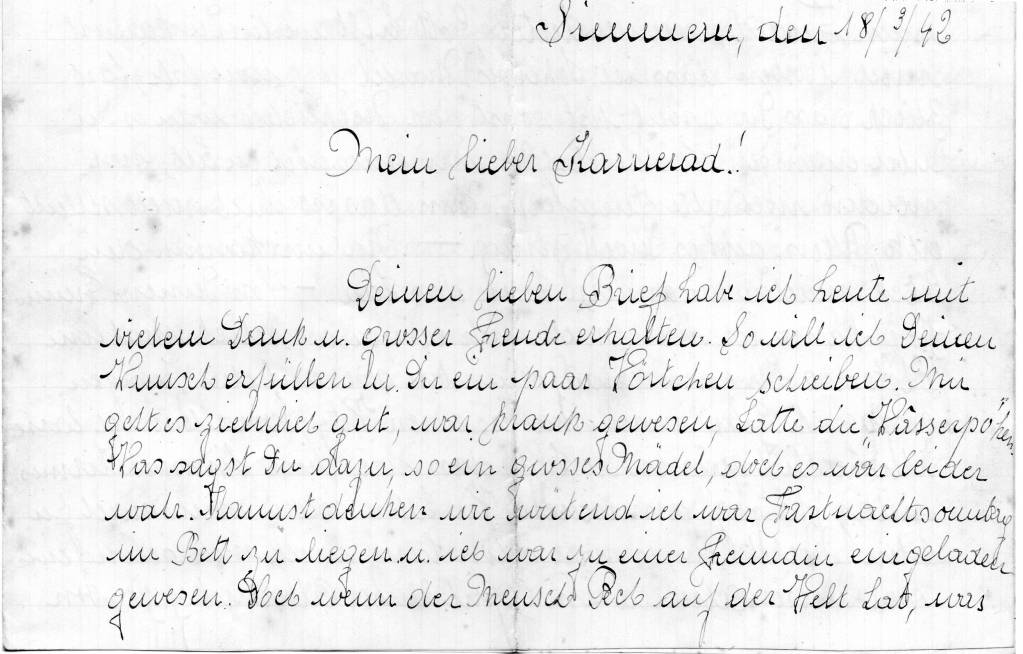 Simmern, den 18/3/42
Mein lieber Kamerad!
Deinen lieben Brief habe ich heute mit
vielem Dank u. grosser Freude erhalten. So will ich Deinen
Wunsch erfüllen u. Dir ein paar Wörtchen schreiben. Mir
geht es ziemlich gut, war krank gewesen, hatte die "Wasserpocken"
Was sagst Du dazu, so ein grosses Mädel, doch es war leider
wahr. Kannst denken wie wütend ich war Fastnachtsonntag
im Bett zu liegen u. ich war zu einer Freundin eingeladen
gewesen. Doch wenn der Mensch Pech auf der Welt hat, was